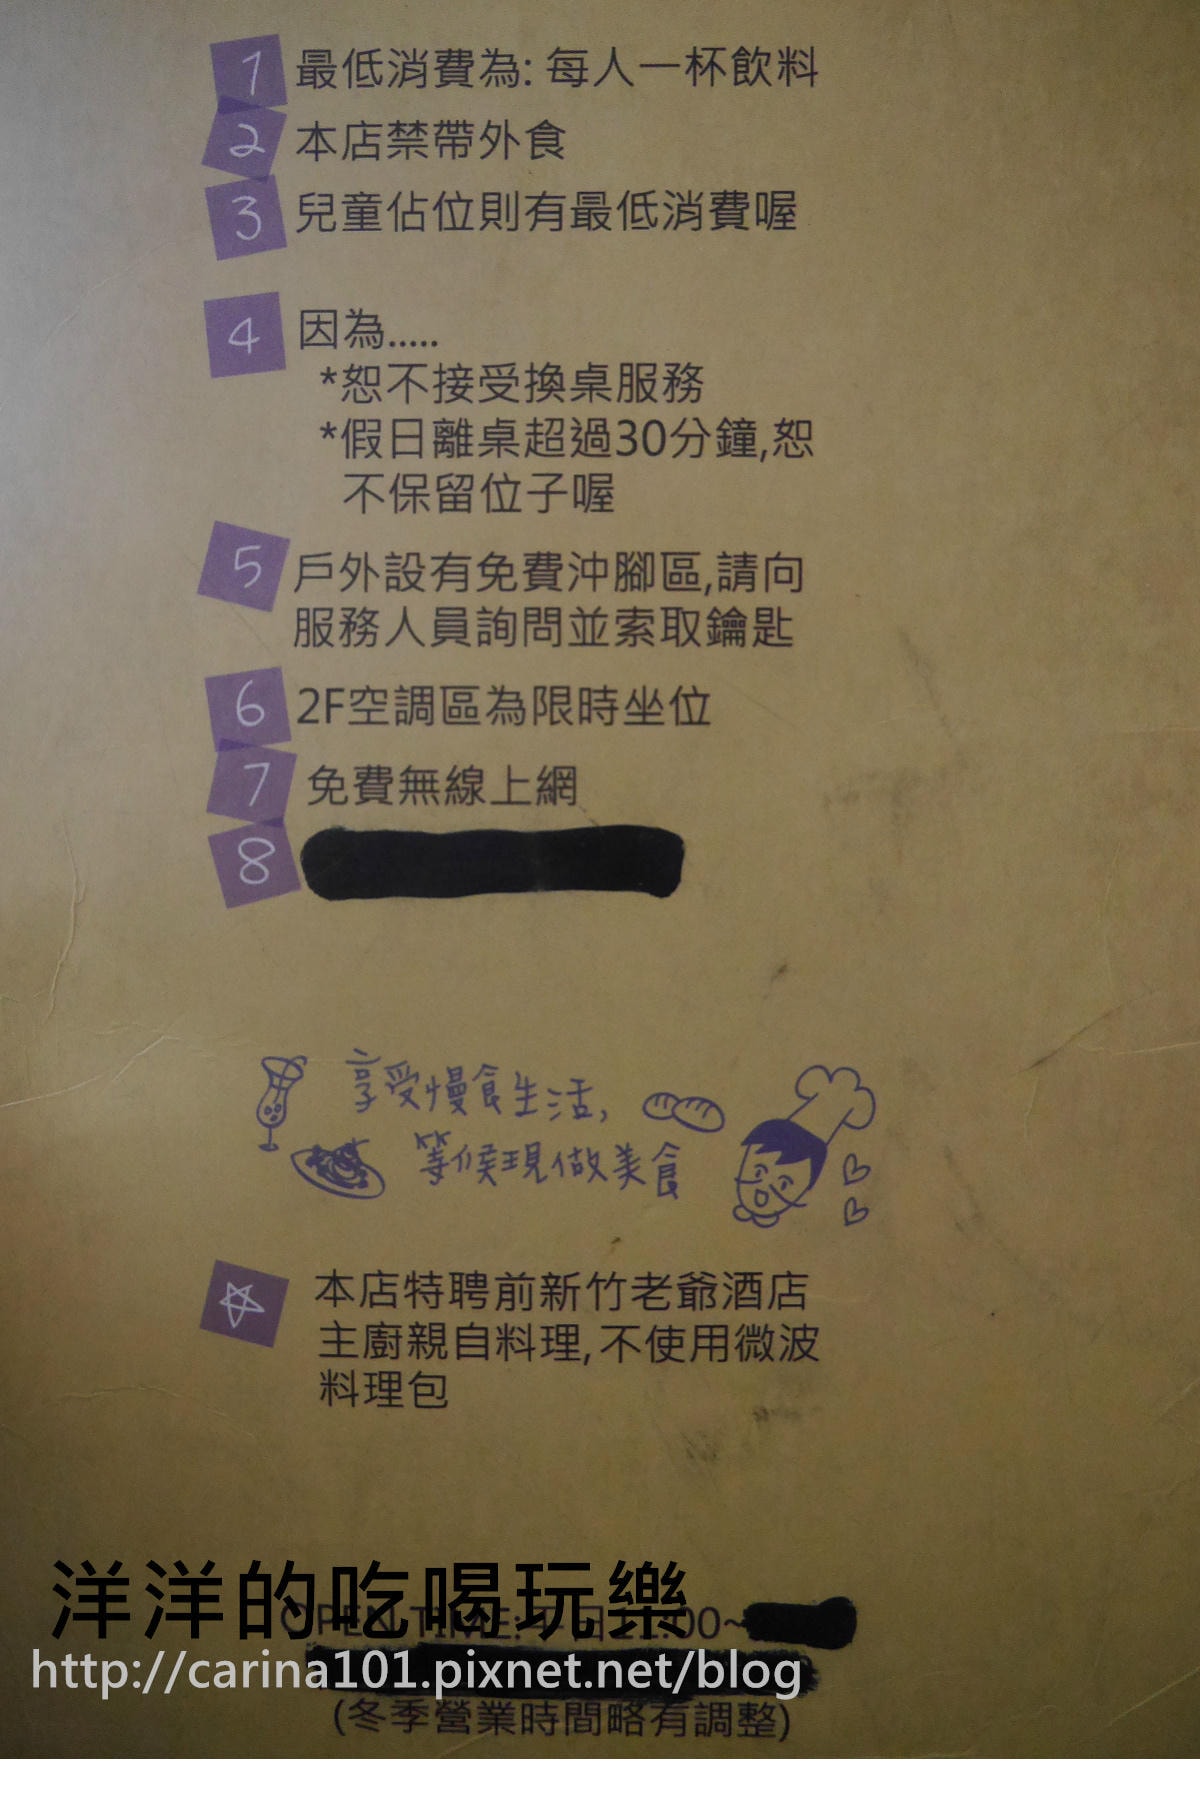 1 最低消費為: 每人一杯飲料
2 本店禁帶外食
3 兒童佔位則有最低消費喔
4 因為.....
*恕不接受換桌服務
*假日離桌超過30分鐘,恕
不保留位子喔
5 戶外設有免費沖腳區,請向
服務人員詢問並索取鑰匙
6 2F空調區為限時坐位
7 免費無線上網
8
享受慢食生活,
等候現做美食
本店特聘前新竹老爺酒店
主廚親自料理,不使用微波
料理包
洋洋的吃喝玩樂
OPEN TIME:
http://carina101.pixnet.net/blog
(冬季營業時間略有調整)